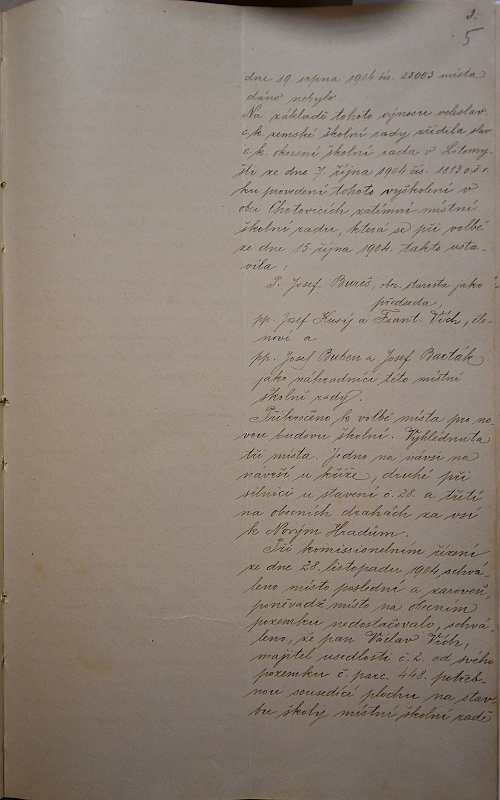 3.
5
dne 19 srpna 1904 čís. 25003 místa
dáno nebylo
Na základě tohoto výnosu veleslav.
c. k. zemské školní rady zřídila slav.
c. k. okresní školní rada v Litomy-
šli ze dne 7. října 1904 čís. 1893 o.š.r.
ku provedení tohoto vyškolení v
obci Chotovicích zatímní místní
školní radu, která se při volbě
ze dne 15. října 1904. takto usta-
vila:
P. Josef Bureš, obec. starosta jako
předseda,
pp. Josef Kusý a Frant. Vích, čle-
nové a
pp. Josef Buben a Josef Barták
jako náhradníci této místní
školní rady.
Přikročeno k volbě místa pro no-
vou budovu školní. Vyhlédnuta
tři místa. Jedno na návsi na
návrší u kříže, druhé při
silnici u stavení č. 28. a třetí
na obecních drahách za vsí
k Novým Hradům.
Při komisionelním řízení
ze dne 28. listopadu 1904, schvá-
leno místo poslední a zároveň,
poněvadž místo na obecním
pozemku nedostačovalo, schvá-
leno, že pan Václav Vích,
majitel usedlosti č. 2. od svého
pozemku č. parc. 448. potřeb-
nou sousedící plochu na stav-
bu školy místní školní radě